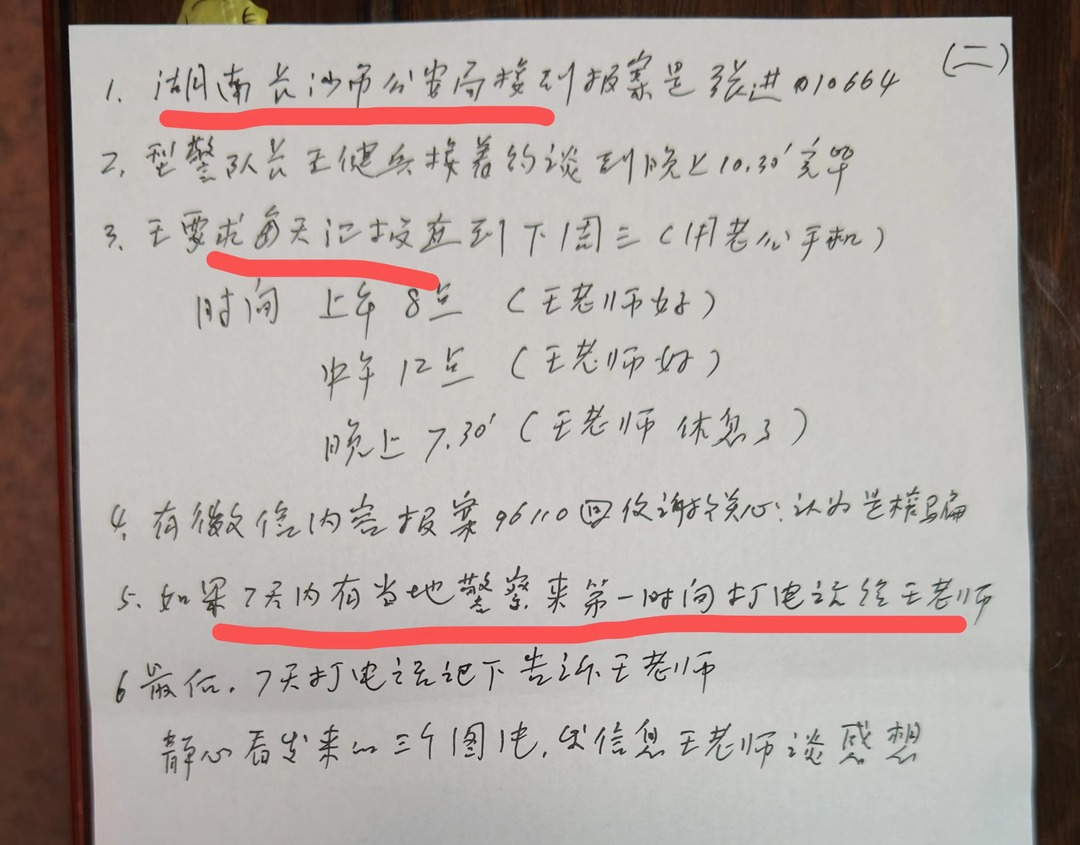 (二)
1. 湖南长沙市公安局接到报案是张进010664
2. 型警队长王健兵接着约谈到晚上10.30'完毕
3. 王要求每天汇报直到下周三(用老公手机)
时间 上午 8点 (王老师好)
中午 12点 (王老师好)
晚上 7.30' (王老师 休息了)
4. 有微信内容报案96110回仅谢关心:认为是榨骗
5. 如果7天内有当地警察来第一时间打电话给王老师
6 最后.7天打电话记下告诉王老师
静心看发来的三个图片,发信息王老师谈感想